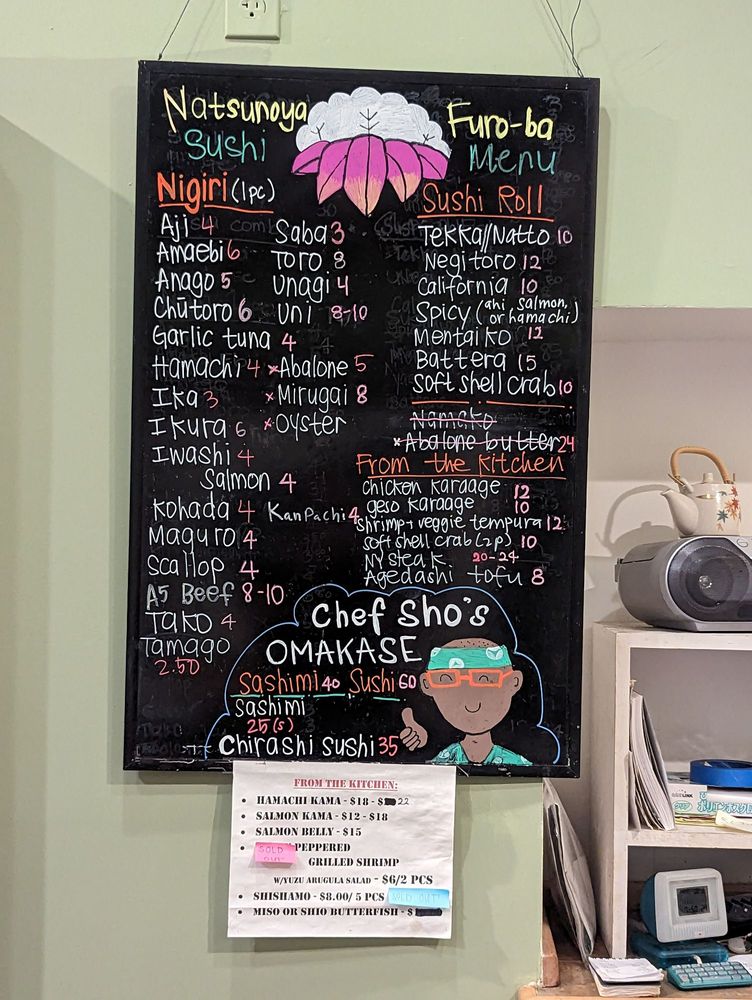 Natsunoya Furo-ba
Sushi Menu
Nigiri (1pc)
Aji 4
Amaebi 6
Anago 5
Chūtoro 6
Garlic tuna 4
Hamachi 4
Ika 3
Ikura 6
Iwashi 4
Salmon 4
Kohada 4
Maguro 4
Scallop 4
A5 Beef 8-10
Tako 4
Tamago
2.50
Saba 3
Toro 8
Unagi 4
Uni 8-10
×Abalone 5
×Mirugai 8
×Oyster
KanPachi 4
Sushi Roll
Tekka//Natto 10
Negitoro 12
California 10
Spicy (ahi, salmon,
or hamachi)
Mentaiko 12
Battera 15
Soft shell crab 10
Namako
×Abalone butter 24
From the Kitchen
chicken karaage 12
geso karaage 10
shrimp + veggie tempura 12
soft shell crab (2p) 10
NY steak 20-24
Agedashi tofu 8
Chef Sho's
OMAKASE
Sashimi 40 Sushi 60
Sashimi
25 (s)
Chirashi Sushi 35
FROM THE KITCHEN:
• HAMACHI KAMA - $18 - $ 22
• SALMON KAMA - $12 - $18
• SALMON BELLY - $15
• SOLD OUT PEPPERED
GRILLED SHRIMP
W/YUZU ARUGULA SALAD - $6/2 PCS
• SHISHAMO - $8.00/ 5 PCS SOLD OUT!
• MISO OR SHIO BUTTERFISH - $